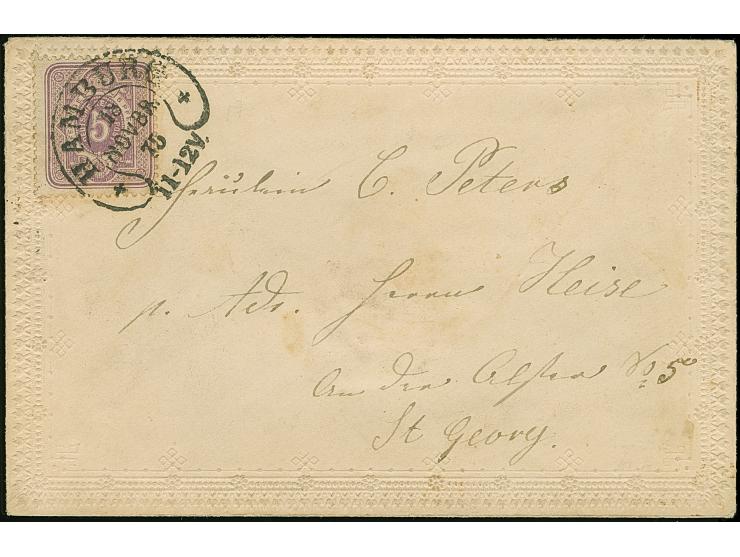 HAMBURG
18
NOVBR.
75
11-12V.
5
Fräulein C. Peters
p. Adr. Herrn Heise
An der Alster No 5
St Georg.